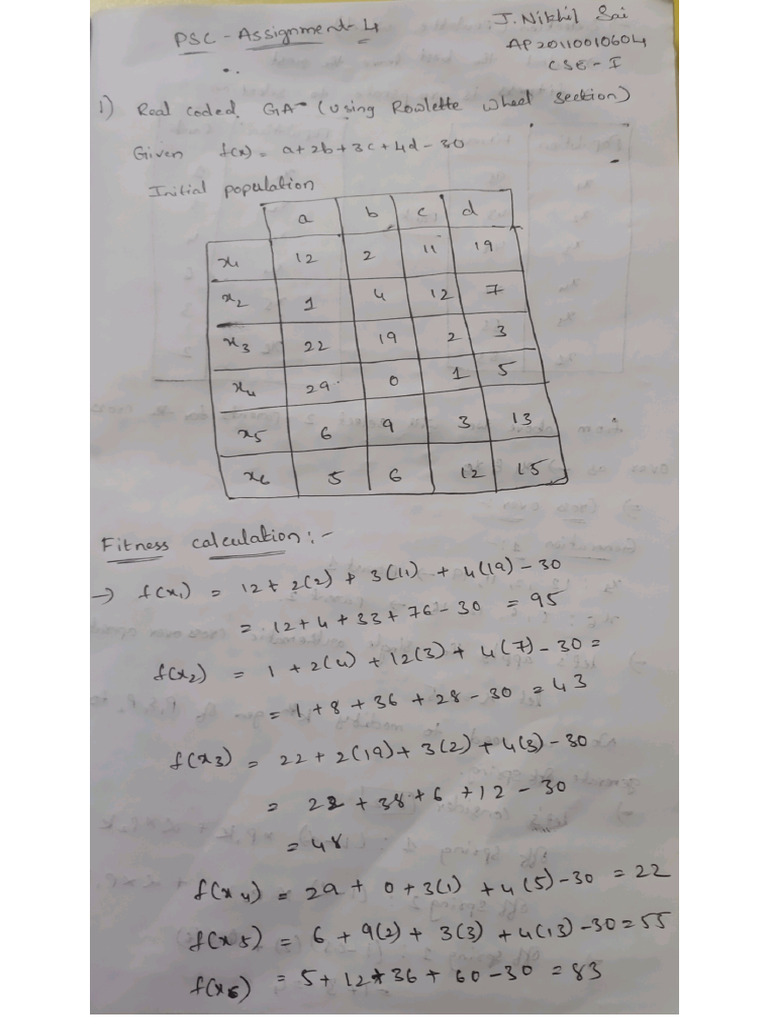 PSC - Assignment-4
J. Nikhil Sai
AP20110010604
CSE - I
1) Real coded GA - (Using Rowlette wheel section)
Given f(x) = a+2b+3c+4d-30
Initial population
a b c d
x1 12 2 11 19
x2 1 4 12 7
x3 22 19 2 3
x4 29 0 1 5
x5 6 9 3 13
x6 5 6 12 15
Fitness calculation :-
→ f(x1) = 12+ 2(2) + 3(11) + 4(19) - 30
= 12+4+33+76-30 = 95
f(x2) = 1+2(4)+12(3)+4(7)-30 =
= 1+8+36+28-30 = 43
f(x3) = 22+2(19)+3(2)+4(3)-30
= 22+38+6+12-30
= 48
f(x4) = 29+ 0+3(1) +4(5)-30 = 22
f(x5) = 6+9(2)+3(3)+4(13)-30=55
f(x6) = 5+12+36+60-30=83